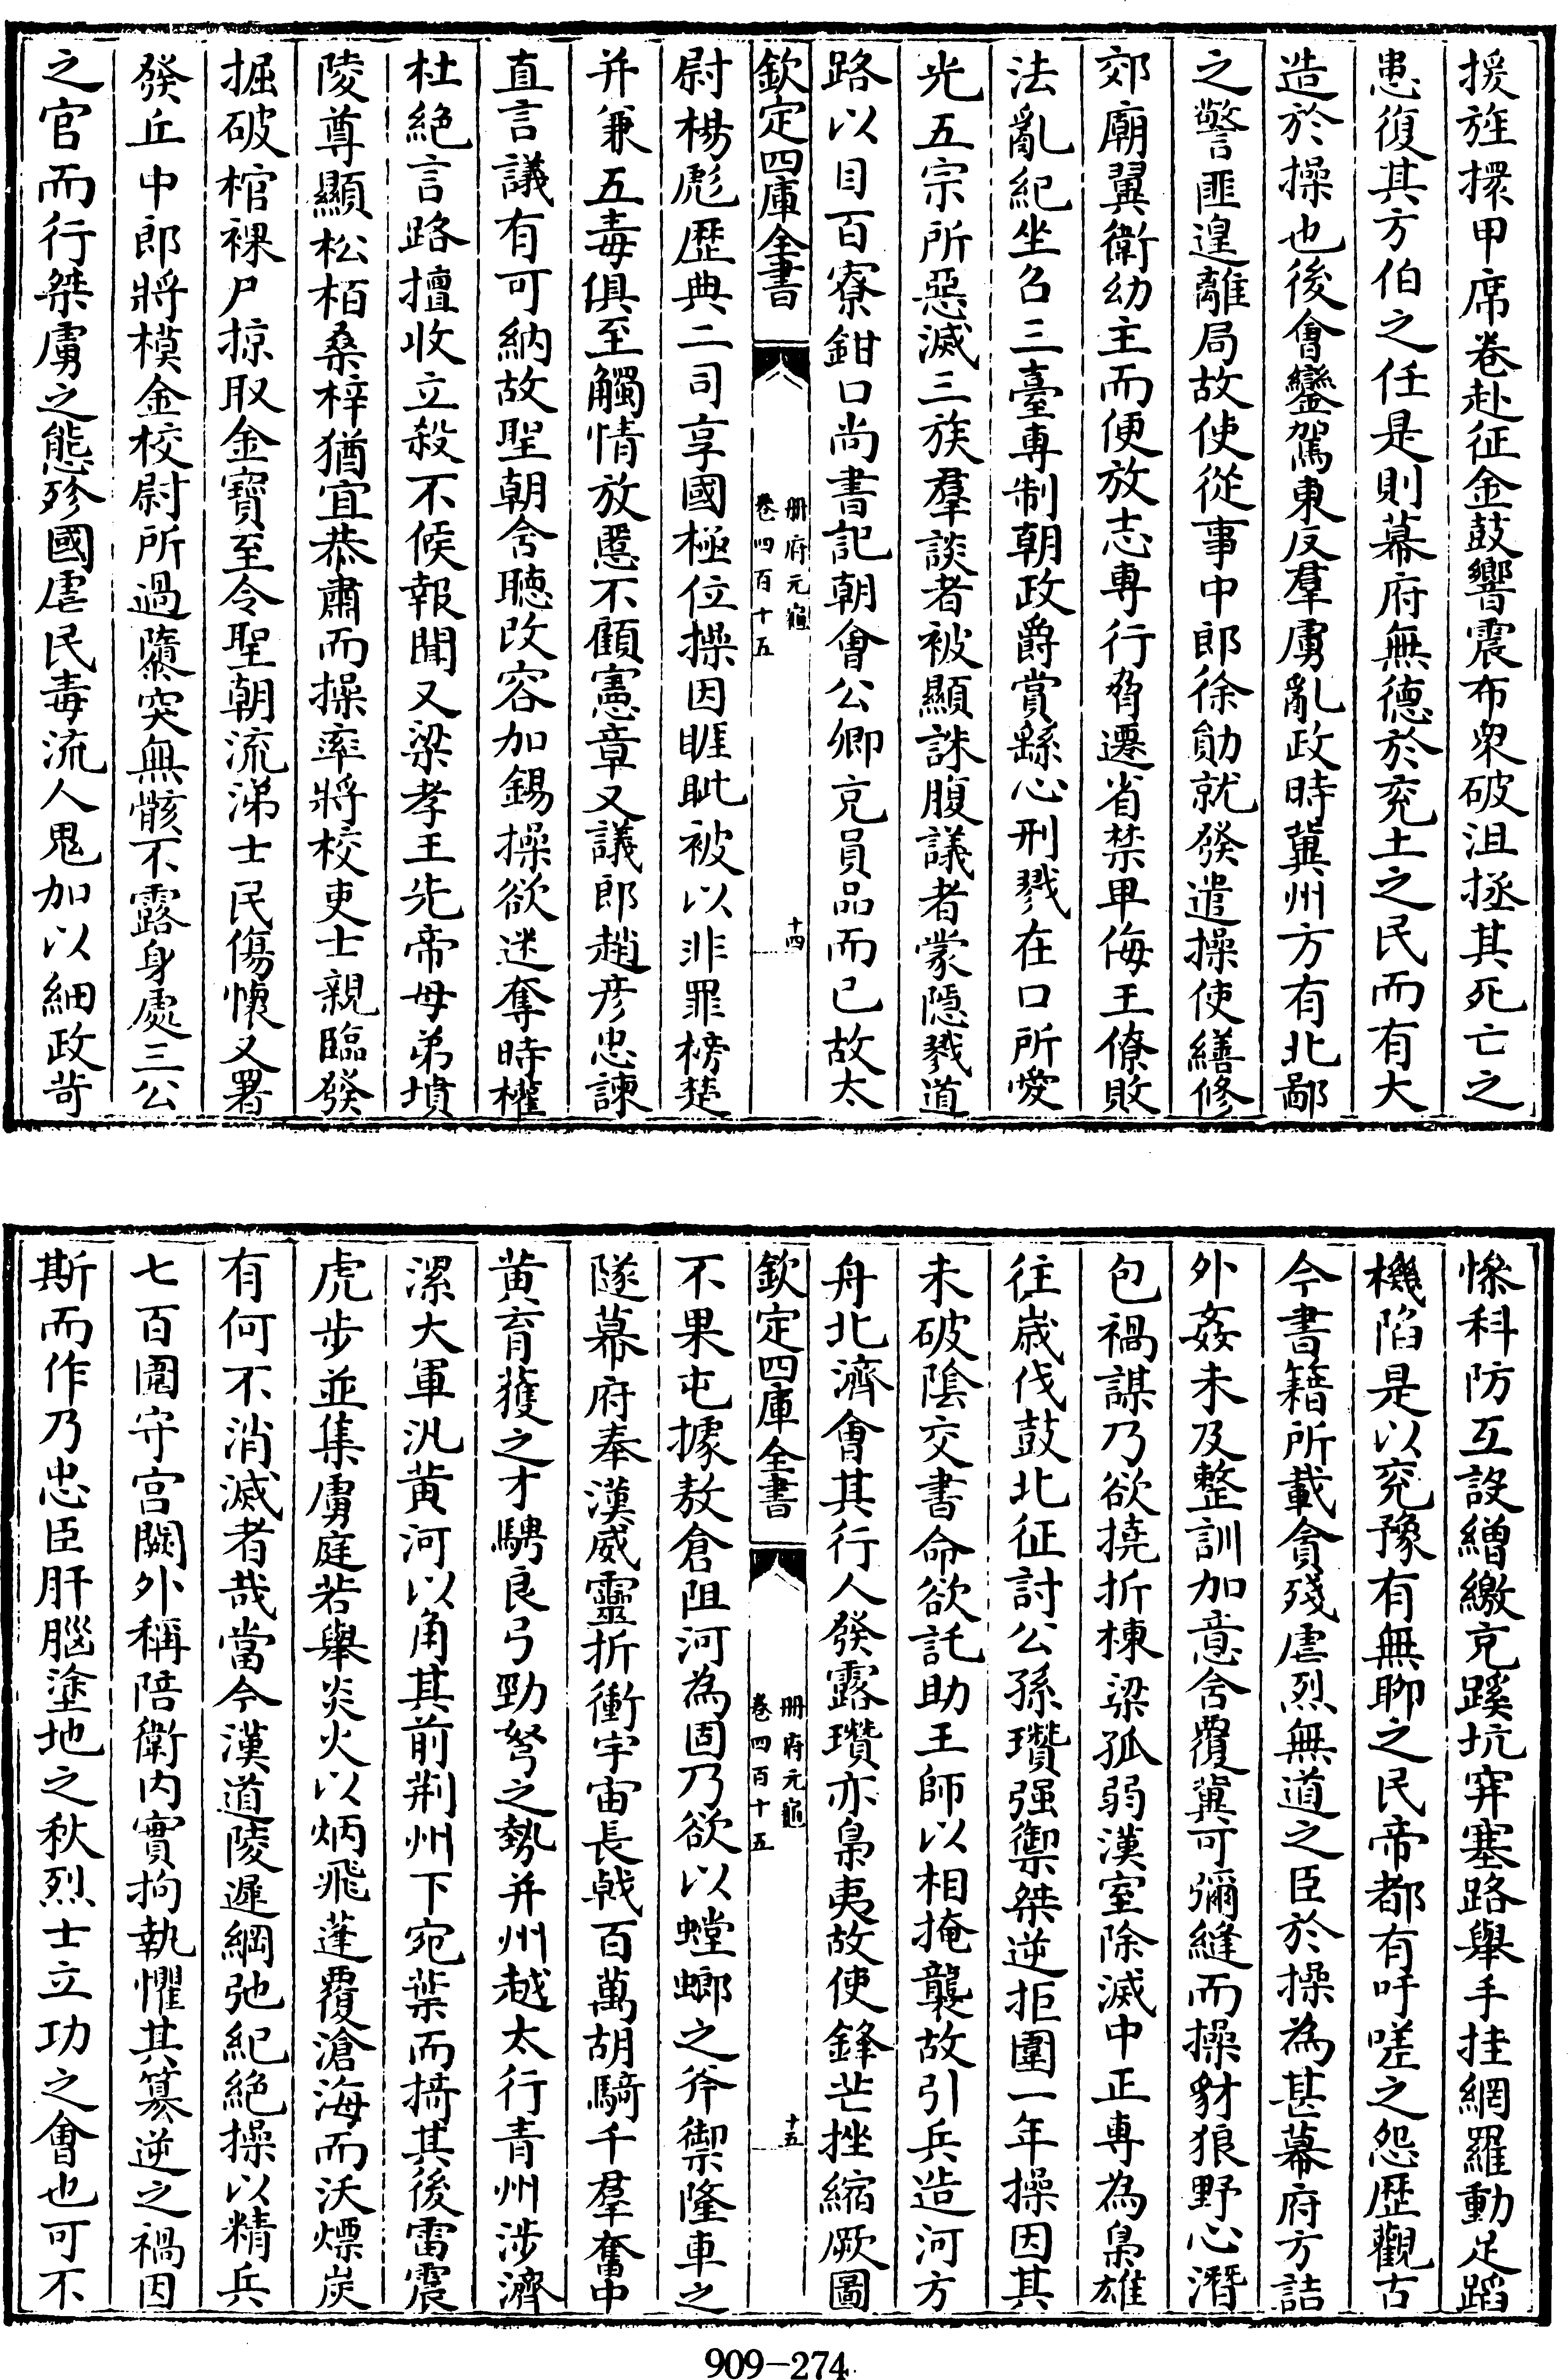 援旌擐甲席卷赴征金鼓響震布衆破沮拯其死亡之
患復其方伯之任是則幕府無德於兖土之民而有大
造於操也後會鑾駕東反羣虜亂政時冀州方有北鄙
之警匪遑離局故使從事中郎徐勛就發遣操使繕修
郊廟翼衛幼主而便放志専行脅遷省禁卑侮王僚敗
法亂紀坐召三臺専制朝政爵賞繇心刑戮在口所愛
光五宗所惡滅三族羣談者被顯誅腹議者蒙隠戮道
路以目百寮鉗口尚書記朝會公卿充員品而已故太
欽定四庫全書
册府元龜
卷四百十五
十四
尉楊彪歴典二司享國極位操因睚眦被以非罪榜楚
并兼五毒俱至觸情放慝不顧憲章又議郎趙彦忠諫
直言議有可納故聖朝含聽改容加錫操欲迷奪時權
杜絶言路擅收立殺不候報聞又梁孝王先帝母弟墳
陵尊顯松栢桑梓猶宜恭肅而操率將校吏士親臨發
掘破棺裸尸掠取金寶至令聖朝流涕士民傷懐又署
發丘中郎將模金校尉所過隳突無骸不露身處三公
之官而行桀虜之態殄國虐民毒流人鬼加以細政苛
慘科防互設繒繳充蹊坑穽塞路舉手挂網羅動足蹈
機陷是以兖豫有無聊之民帝都有吁嗟之怨歴觀古
今書籍所載貪殘虐烈無道之臣於操為甚幕府方詰
外姦未及整訓加意含覆冀可彌縫而操豺狼野心潛
包禍謀乃欲撓折棟梁孤弱漢室除滅中正専為梟雄
往嵗伐鼓北征討公孫瓚强禦桀逆拒圍一年操因其
未破隂交書命欲託助王師以相掩襲故引兵造河方
舟北濟會其行人發露瓚亦梟夷故使鋒芒挫縮厥圖
欽定四庫全書
册府元龜
卷四百十五
十五
不果屯據敖倉阻河為固乃欲以螳螂之斧禦隆車之
隧幕府奉漢威靈折衝宇宙長㦸百萬胡騎千羣奮中
黄育獲之才騁良弓勁弩之勢并州越太行青州渉濟
漯大軍汎黄河以角其前荆州下宛葉而掎其後雷震
虎歩並集虜庭若舉炎火以炳飛蓬覆滄海而沃熛炭
有何不消滅者哉當今漢道陵遲綱弛紀絶操以精兵
七百圍守宫闕外稱陪衛内實拘執懼其簒逆之禍因
斯而作乃忠臣肝腦塗地之秋烈士立功之會也可不
909-274